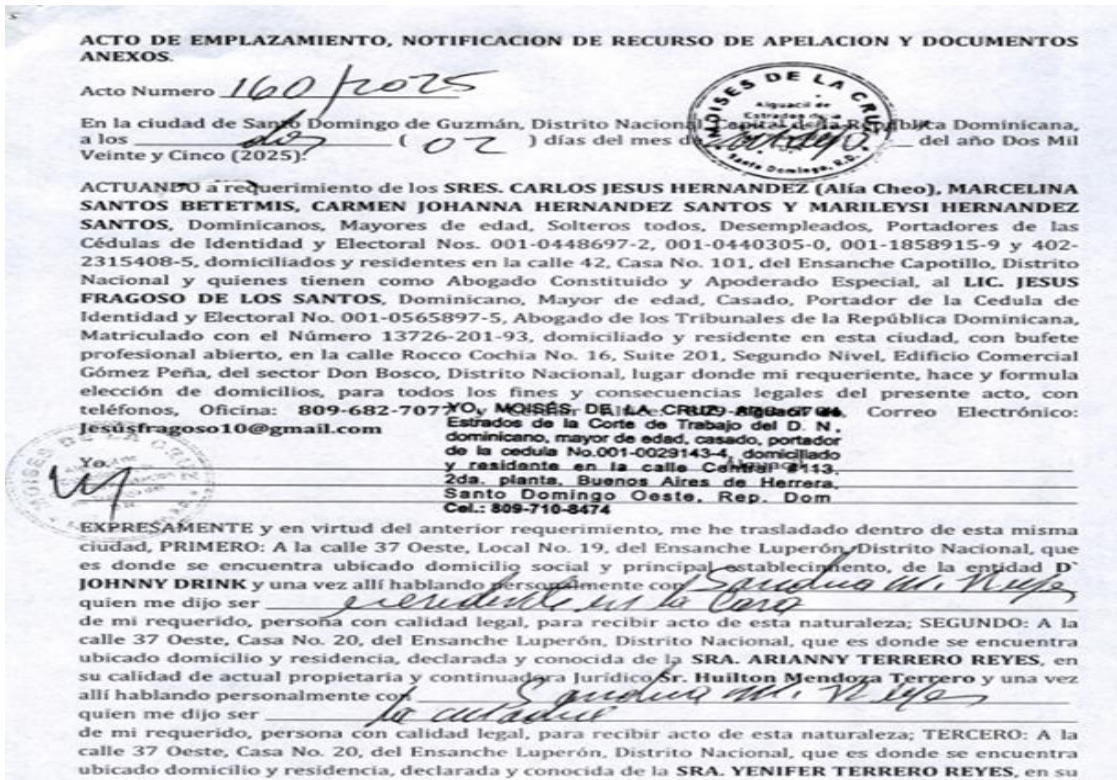 ACTO DE EMPLAZAMIENTO, NOTIFICACION DE RECURSO DE APELACION Y DOCUMENTOS
ANEXOS.
Acto Numero 160/2025
MOISES DE LA CRUZ
Alguacil de
Estrados de la
Santo Domingo, R.D.
En la ciudad de Santo Domingo de Guzmán, Distrito Nacional, Capital de la República Dominicana,
a los ( 02 ) días del mes de del año Dos Mil
Veinte y Cinco (2025).
ACTUANDO a requerimiento de los SRES. CARLOS JESUS HERNANDEZ (Alía Cheo), MARCELINA
SANTOS BETETMIS, CARMEN JOHANNA HERNANDEZ SANTOS Y MARILEYSI HERNANDEZ
SANTOS, Dominicanos, Mayores de edad, Solteros todos, Desempleados, Portadores de las
Cédulas de Identidad y Electoral Nos. 001-0448697-2, 001-0440305-0, 001-1858915-9 y 402-
2315408-5, domiciliados y residentes en la calle 42, Casa No. 101, del Ensanche Capotillo, Distrito
Nacional y quienes tienen como Abogado Constituido y Apoderado Especial, al LIC. JESUS
FRAGOSO DE LOS SANTOS, Dominicano, Mayor de edad, Casado, Portador de la Cedula de
Identidad y Electoral No. 001-0565897-5, Abogado de los Tribunales de la República Dominicana,
Matriculado con el Número 13726-201-93, domiciliado y residente en esta ciudad, con bufete
profesional abierto, en la calle Rocco Cochia No. 16, Suite 201, Segundo Nivel, Edificio Comercial
Gómez Peña, del sector Don Bosco, Distrito Nacional, lugar donde mi requeriente, hace y formula
elección de domicilios, para todos los fines y consecuencias legales del presente acto, con
teléfonos, Oficina: 809-682-7077 y Correo Electrónico:
Jesúsfragoso10@gmail.com
YO, MOISÉS DE LA CRUZ, Alguacil de
Estrados de la Corte de Trabajo del D. N.,
dominicano, mayor de edad, casado, portador
de la cedula No.001-0029143-4, domiciliado
y residente en la calle Central #113,
2da. planta, Buenos Aires de Herrera,
Santo Domingo Oeste, Rep. Dom
Cel.: 809-710-8474
Yo.
EXPRESAMENTE y en virtud del anterior requerimiento, me he trasladado dentro de esta misma
ciudad, PRIMERO: A la calle 37 Oeste, Local No. 19, del Ensanche Luperón, Distrito Nacional, que
es donde se encuentra ubicado domicilio social y principal establecimiento, de la entidad D`
JOHNNY DRINK y una vez allí hablando personalmente con Sandra M.
quien me dijo ser en la
de mi requerido, persona con calidad legal, para recibir acto de esta naturaleza; SEGUNDO: A la
calle 37 Oeste, Casa No. 20, del Ensanche Luperón, Distrito Nacional, que es donde se encuentra
ubicado domicilio y residencia, declarada y conocida de la SRA. ARIANNY TERRERO REYES, en
su calidad de actual propietaria y continuadora Jurídico Sr. Huilton Mendoza Terrero y una vez
allí hablando personalmente con Sandra M.
quien me dijo ser
de mi requerido, persona con calidad legal, para recibir acto de esta naturaleza; TERCERO: A la
calle 37 Oeste, Casa No. 20, del Ensanche Luperón, Distrito Nacional, que es donde se encuentra
ubicado domicilio y residencia, declarada y conocida de la SRA. YENIFER TERRERO REYES, en su